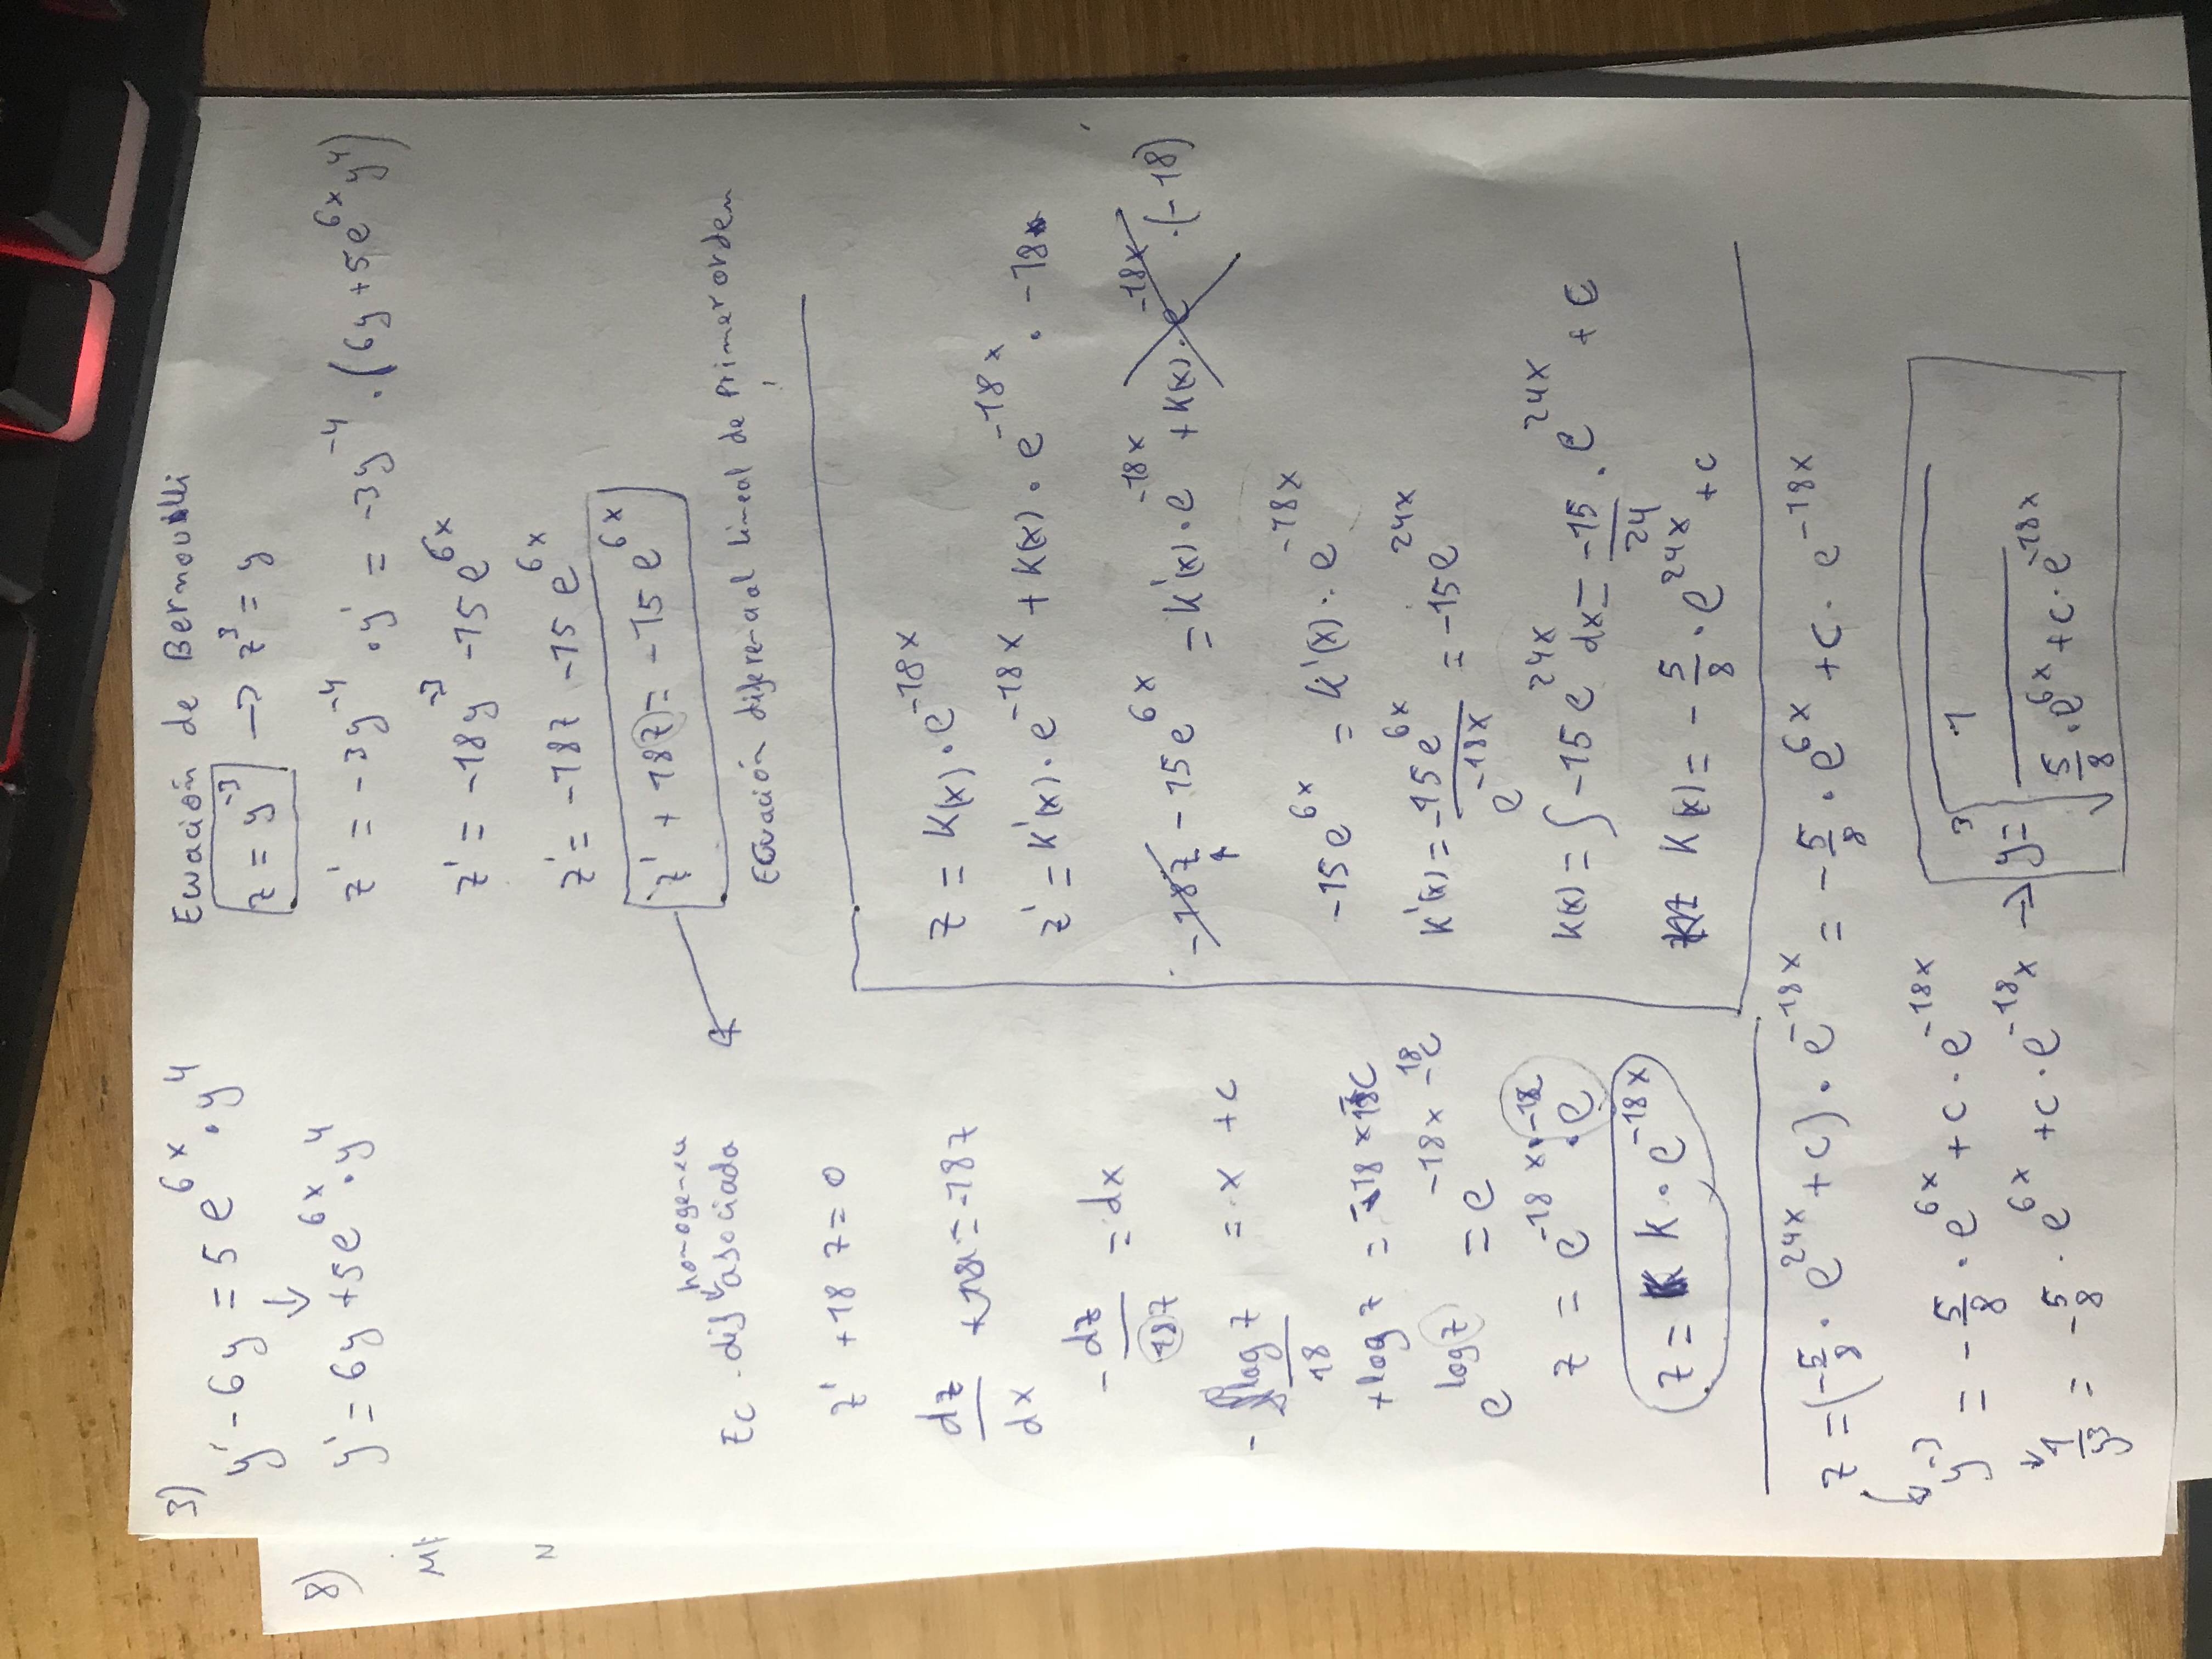 3)
y' - 6y = 5e^{6x} · y^4
↓
y' = 6y + 5e^{6x} · y^4
8)
N
Ecuación de Bernoulli
z = y^{-3} → z^3 = y
z' = -3y^{-4} · y' = -3y^{-4} · (6y + 5e^{6x} y^4)
z' = -18y^{-3} - 15e^{6x}
z' = -18z - 15e^{6x}
z' + 18z = -15e^{6x}
Ecuación diferencial lineal de primer orden
homogenea
Ec. dif asociada
z' + 18z = 0
dz/dx = -18z
- dz/18z = dx
- log z/18 = x + c
+log z = -18x - 18c
e^{log z} = e^{-18x - 18c}
z = e^{-18x} · e^{-18c}
z = K · e^{-18x}
z = K(x) · e^{-18x}
z' = K'(x) · e^{-18x} + K(x) · e^{-18x} · -18
-18z - 15e^{6x} = K'(x) · e^{-18x} + K(x) · e^{-18x} · (-18)
-15e^{6x} = K'(x) · e^{-18x}
K'(x) = -15e^{6x}/e^{-18x} = -15e^{24x}
K(x) = ∫ -15e^{24x} dx = -15/24 · e^{24x} + C
K(x) = - 5/8 · e^{24x} + c
z = (- 5/8 · e^{24x} + c) · e^{-18x} = - 5/8 · e^{6x} + c · e^{-18x}
y^{-3} = - 5/8 · e^{6x} + c · e^{-18x}
1/y^3 = - 5/8 · e^{6x} + c · e^{-18x} → y = ∛(1/(5/8 · e^{6x} + c · e^{-18x}))